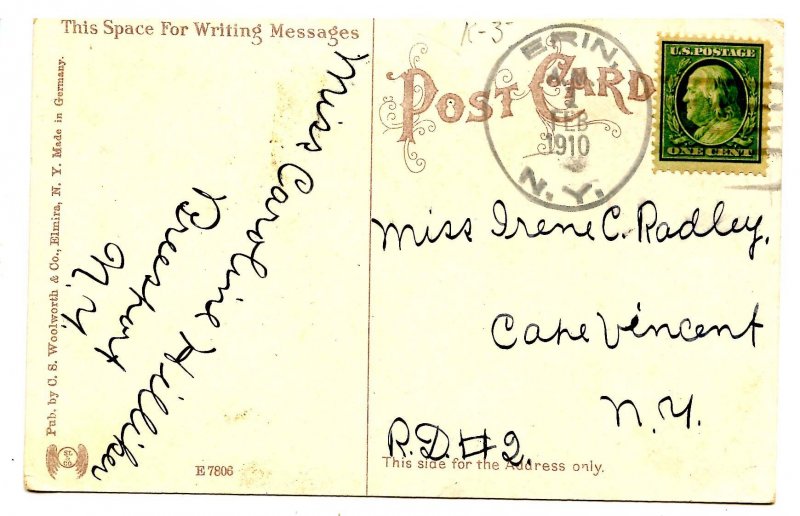 This Space For Writing Messages
Pub. by C. S. Woolworth & Co., Elmira, N. Y. Made in Germany.
Miss Caroline Hilliker
Breesport
N.Y.
E 7806
K-3-
POST CARD
ERIN,
A.M.
1
FEB
1910
N.Y.
U.S. POSTAGE
ONE CENT
Miss Irene C. Radley,
Cape Vincent
N.Y.
R.D.#2.
This side for the Address only.